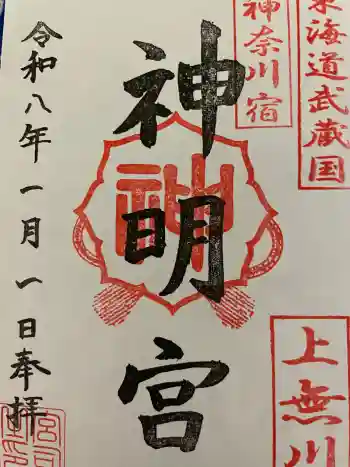 東海道武蔵国
神奈川宿
上無川
神明宮
神
令和八年一月一日奉拝